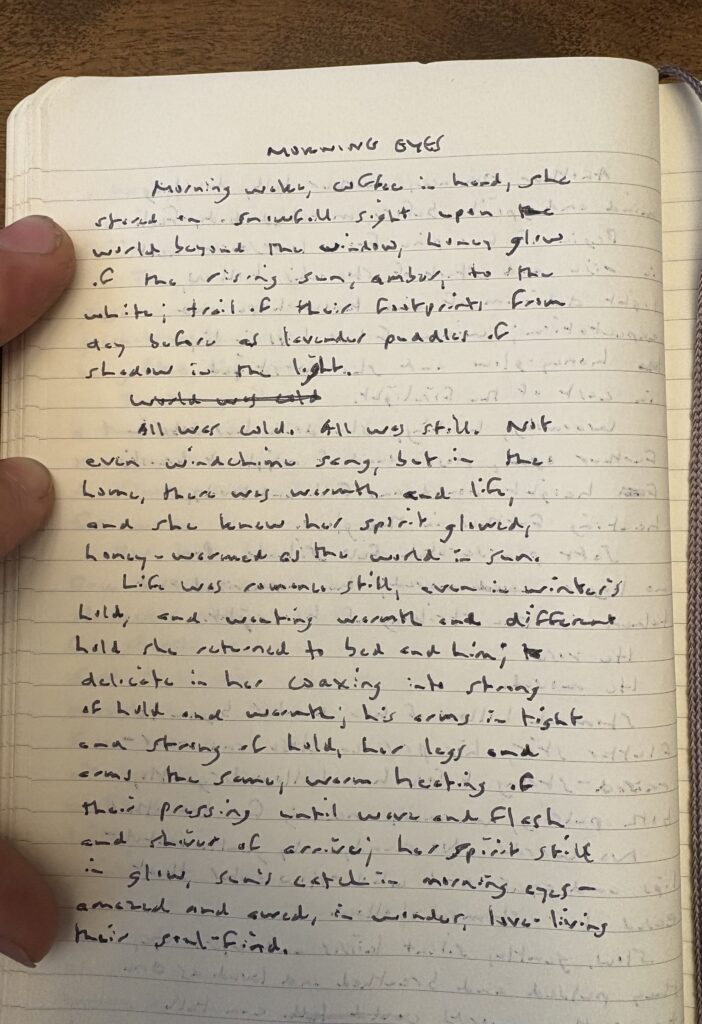 MORNING EYES
Morning woke, coffee in hand, she
stared on snowfall sight upon the
world beyond the window, honey glow
of the rising sun, amber, to the
white; trail of their footprints from
day before as lavender puddles of
shadow in the light.
World was cold
All was cold. All was still. Not
even windchime sang, but in the
home, there was warmth and life,
and she knew her spirit glowed,
honey-warmed as the world in sun.
Life was romance still, even in winter's
hold, and wanting warmth and different
hold she returned to bed and him;
delicate in her coaxing into strong
of hold and warmth; his arms in tight
and strong of hold, her legs and
arms the same, warm heating of
their pressing until wave and flash
and shiver of arrive; her spirit still
in glow, sun's catch in morning eyes-
amazed and awed, in wonder, love-living
their soul-find.